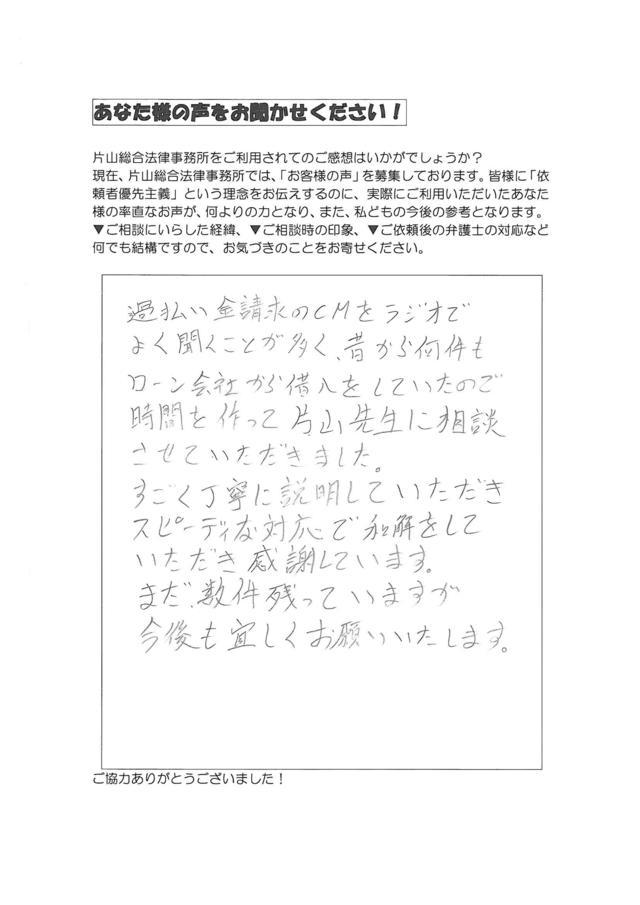 あなた様の声をお聞かせください！
片山総合法律事務所をご利用されてのご感想はいかがでしょうか？
現在、片山総合法律事務所では、「お客様の声」を募集しております。皆様に「依
頼者優先主義」という理念をお伝えするのに、実際にご利用いただいたあなた
様の率直なお声が、何よりの力となり、また、私どもの今後の参考となります。
▼ご相談にいらした経緯、▼ご相談時の印象、▼ご依頼後の弁護士の対応など
何でも結構ですので、お気づきのことをお寄せください。
過払い金請求のCMをラジオで
よく聞くことが多く、昔から何件も
ローン会社から借入をしていたので
時間を作って片山先生に相談
させていただきました。
すごく丁寧に説明していただき
スピーディな対応で和解をして
いただき感謝しています。
まだ、数件残っていますが
今後も宜しくお願いいたします。
ご協力ありがとうございました！